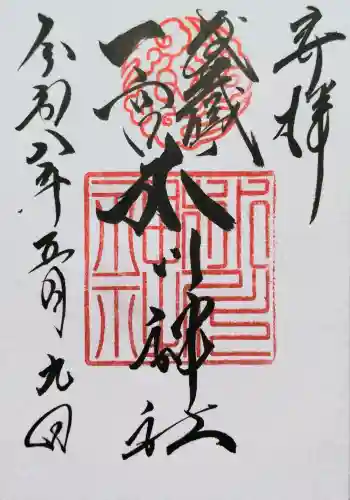 奉拝
武蔵
一宮
氷川神社
令和八年五月九日